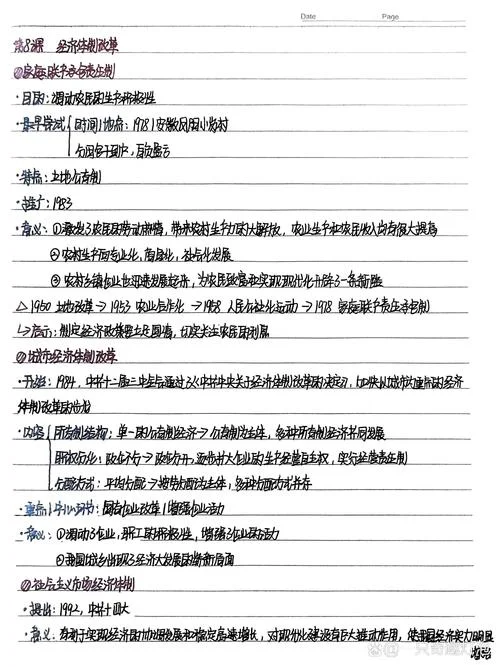 Date Page
第8课 经济体制改革
①家庭联产承包责任制
·目的:调动农民的生产积极性
·最早尝试 时间/地点:1978/安徽凤阳小岗村
分田包干到户,自负盈亏
·特点:土地公有制
·推广:1983
·意义:①激发了农民的劳动热情,带来农村生产力的大解放,农业生产和农民收入均有很大提高
②农村生产向专业化,商品化,社会化发展
③农村乡镇企业也迅速发展起来,为农民致富和实现现代化开辟了一条新路
△1950 土地改革→1953 农业合作化→1958 人民公社化运动→1978 家庭联产责任承包制
↳启示:制定经济政策要立足国情,切实关注农民的利益
②城市经济体制改革
·开始:1984,中共十二届三中全会通过《中共中央关于经济体制改革的决定》,加快以城市为重点的经济
体制改革的步伐
·内容 所有制结构:单一的公有制经济→公有制为主体,多种所有制经济共同发展
政企不分→政企分开,逐步扩大企业的生产经营自主权,实行经营责任制
分配方式:平均分配→按劳分配为主体,多种分配方式并存
·重点/中心环节:国有企业改革/增强企业活力
·意义:①调动了企业,职工的积极性,增强了企业的活力
②我国城乡出现了经济大发展的崭新局面
③社会主义市场经济体制
·提出:1992,中共十四大
·意义:有利于实现经济的协调发展和稳定高速增长,对现代化建设有巨大推动作用,使我国经济实力明显
增强